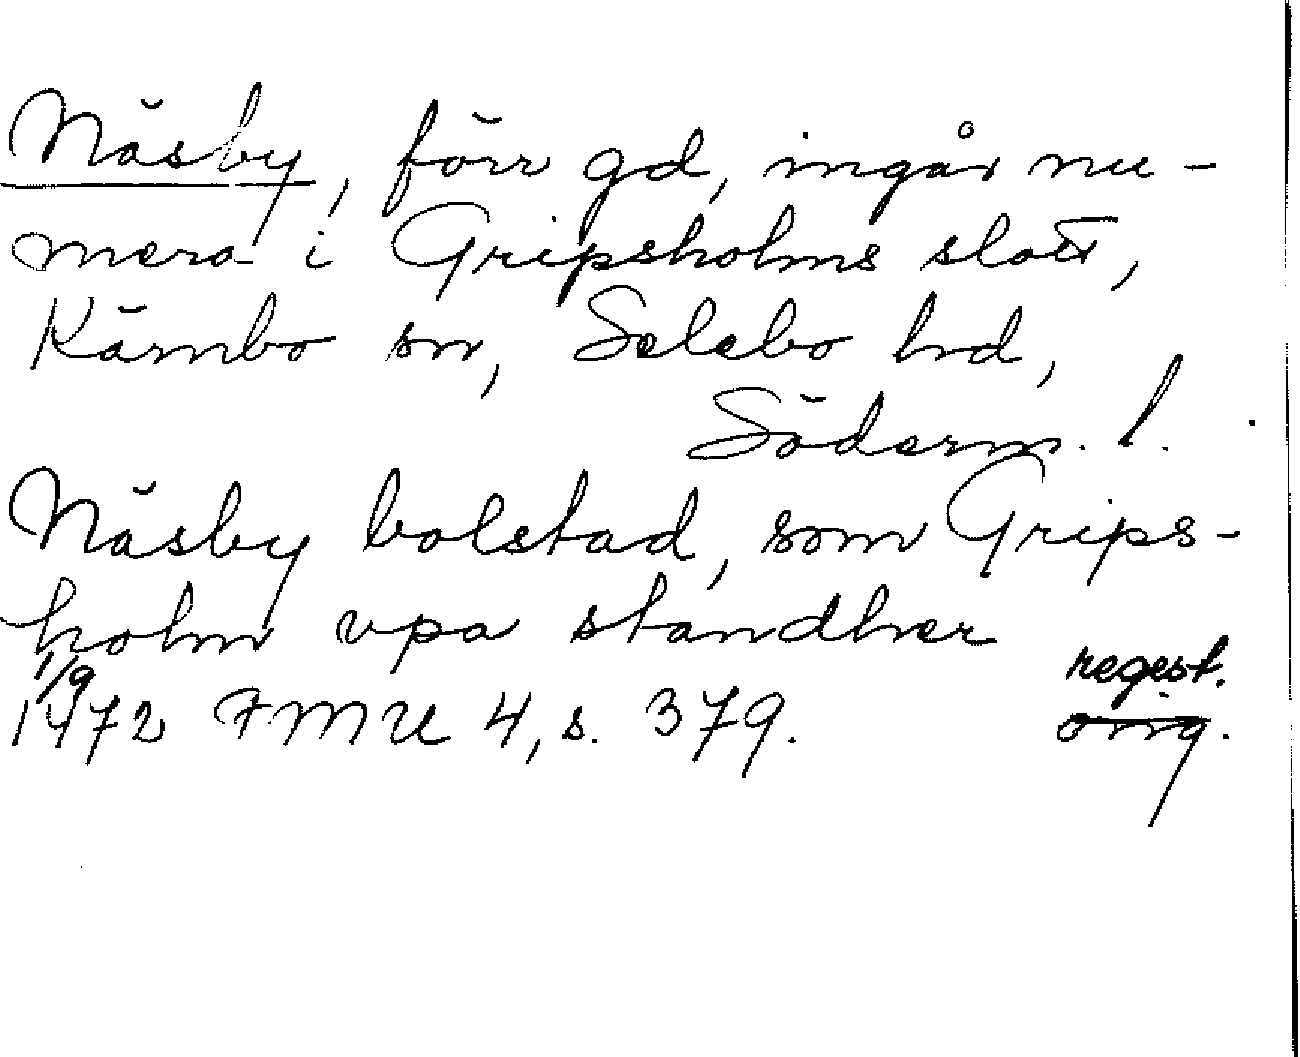 Näsby, förr gd, ingår nu-
mera i Gripsholms slott,
Kärnbo sn, Selebo hd,
Söderm. l.
Näsby bolstad, som Grips-
holm vpa standher
1/9
regest.
1472 FMU 4, s. 379. orig.